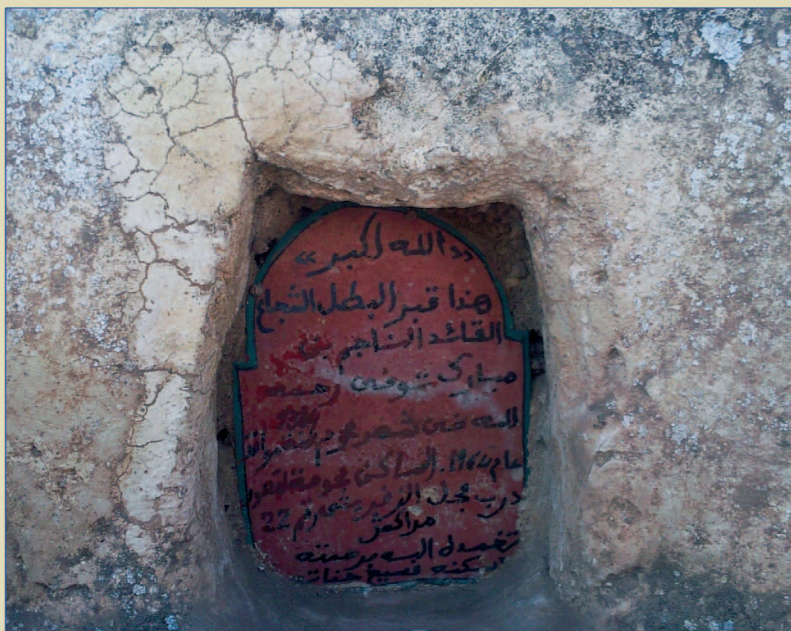 «الله اكبر»
هذا قبر البطل الشجاع
القائد الناجم بن
مبارك توفى رحمه
الله فى شهر محرم
عام 1964. الساكن بحومة
درب رقم 22
مراكش
تغمده الله برحمته
واسكنه فسيح جناته